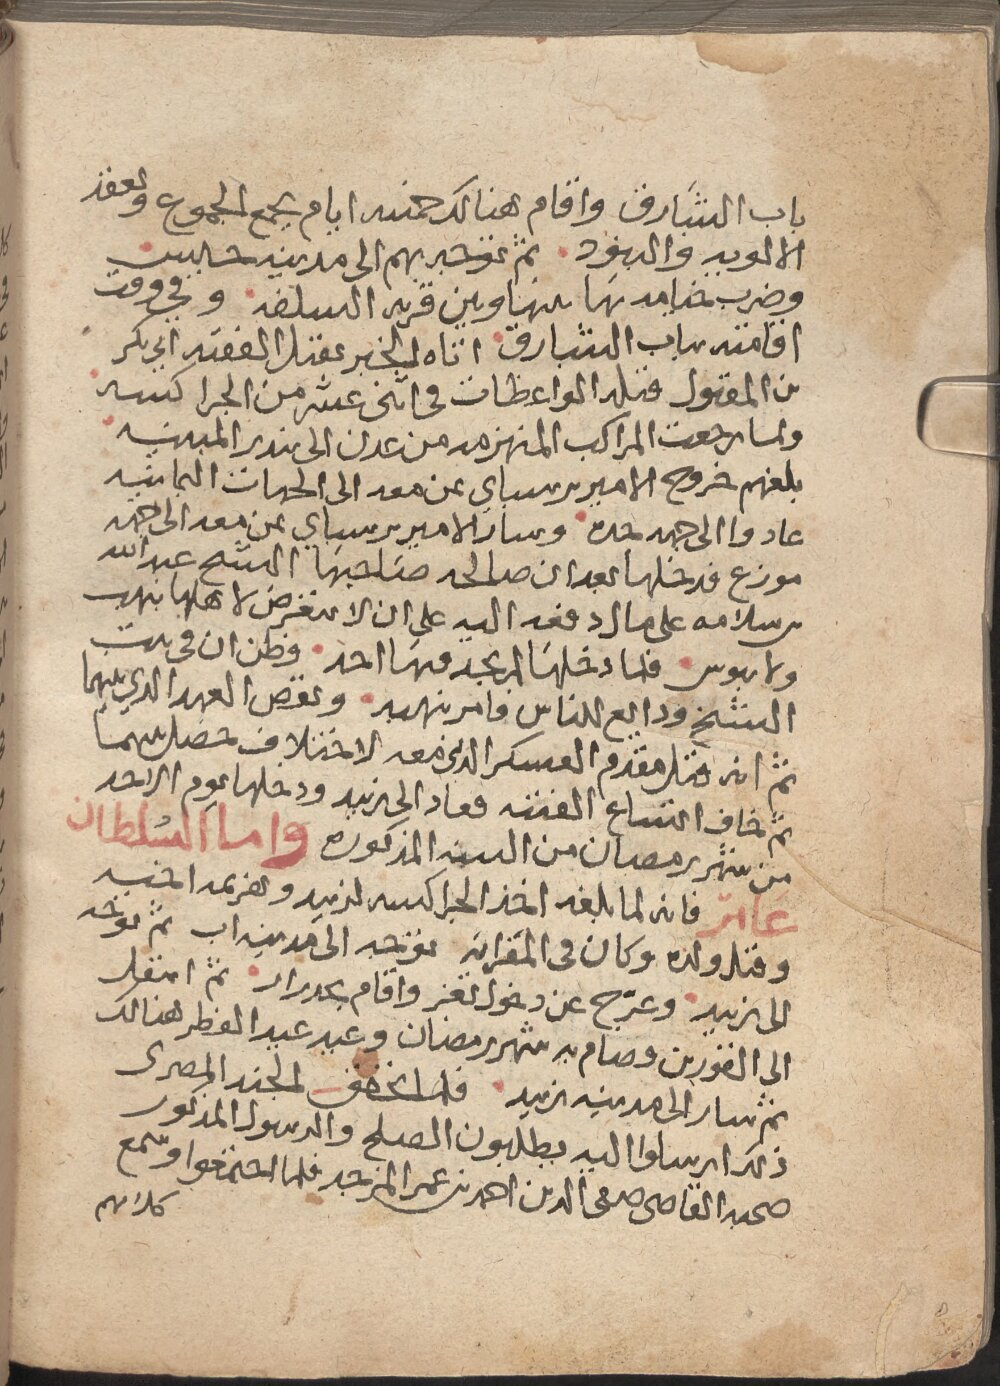 باب الشبارق واقام هنالك خمسه ايام يجمع الجموع ويعقد
الالويه والبنود ثم توجه بهم الى مدينه حيس
وضرب خيامه بها بينها وبين قريه السلامه وفي وقت
اقامته بباب الشبارق اتاه الخبر بقتل الفقيه ابي بكر
بن المقبول قتله الواعظات في اثني عشر من الجراكسه
ولما رجعت المراكب المنهزمه من عدن الى بندر
بلغهم خروج الامير برسباي بمن معه الى الجهات اليمانيه
عادوا الى جهه جده وسار الامير برسباي بمن معه الى جهه
موزع فدخلها بعد ان صالحه صاحبها الشيخ عبد الله
بن سلامه على مال دفعه اليه على ان لا يتعرض لاهلها بنهب
ولا بوس فلما دخلها لم يجد فيها احد وظن ان في بيت
الشيخ ودايع للناس فامر بنهبه ونقض العهد الذي بينهما
ثم انه قتل مقدم العسكر الذي معه لاختلاف حصل بينهما
ثم خاف اتساع الفتنه فعاد الى زبيد ودخلها يوم الاحد
من شهر رمضان من السنه المذكوره واما السلطان
عامر فانه لما بلغه اخذ الجراكسه لزبيد وهزيمه اخيه
وقتل ولده وكان في المقرانه توجه الى مدينه اب ثم توجه
الى زبيد وعرج عن دخول تعز واقام بحدرار ثم انتقل
الى القوزين وصام به شهر رمضان وعيد عيد الفطر هنالك
ثم سار الى مدينه زبيد فلما تحقق الجند المصرى
ذلك ارسلوا اليه يطلبون الصلح والرسول المذكور
صحبه القاضي صفي الدين احمد بن عمر المزجد فلما اجتمعوا وسمع
كلامهم